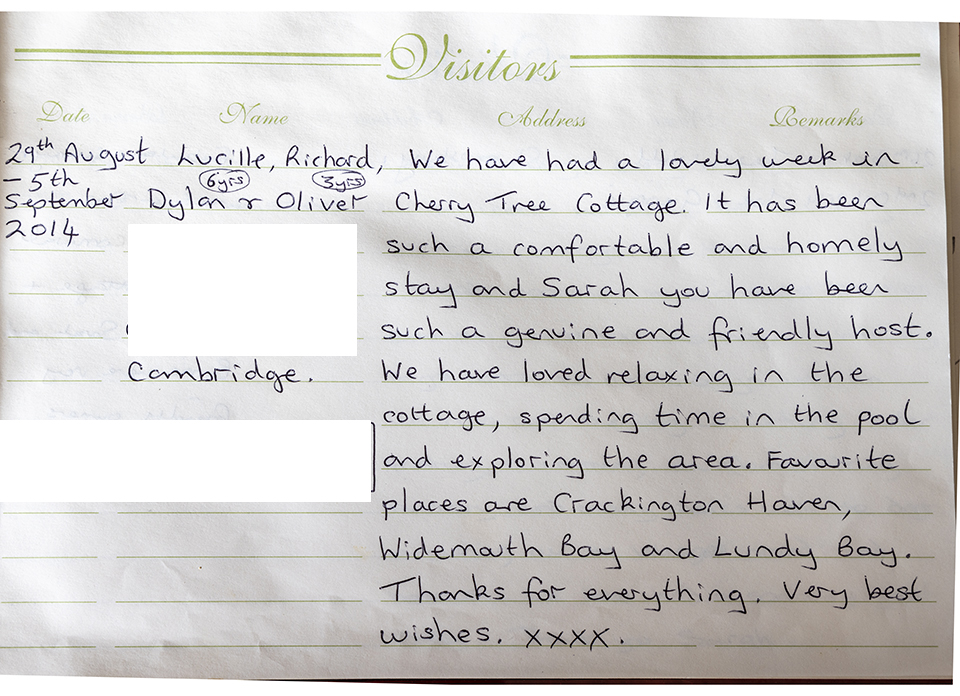 Visitors
Date Name Address Remarks
29th August Lucille, Richard, We have had a lovely week in
- 5th (6yrs) (3yrs)
September Dylan & Oliver Cherry Tree Cottage. It has been
2014
such a comfortable and homely
stay and Sarah you have been
such a genuine and friendly host.
Cambridge. We have loved relaxing in the
cottage, spending time in the pool
and exploring the area. Favourite
places are Crackington Haven,
Widemouth Bay and Lundy Bay.
Thanks for everything. Very best
wishes. xxxx.